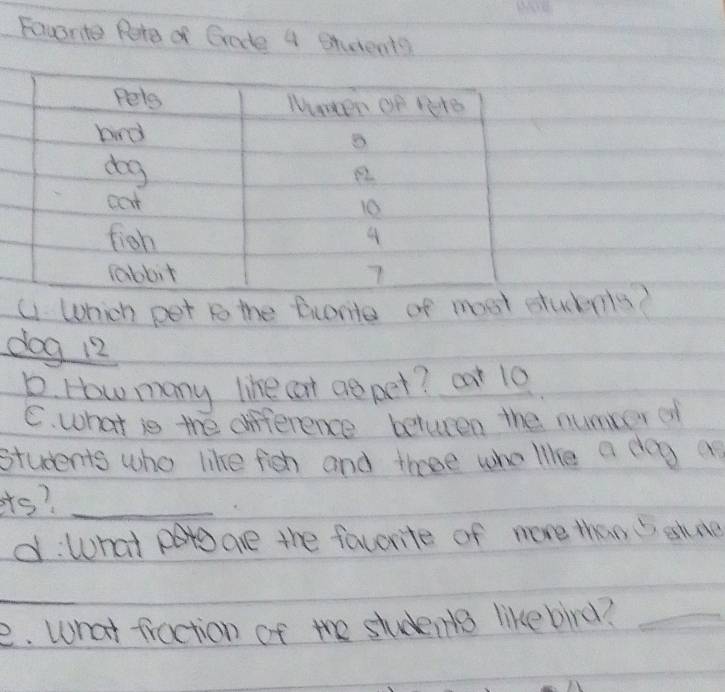 Favorite Pets of Grade 4 Students
Pets Number of Pets
bird
dog 12
cat 10
fish 4
rabbit 7
a. Which pet is the favorite of most students?
dog 12
b. How many like cat as pet? cat 10
c. What is the difference between the number of
students who like fish and those who like a dog as
ets?
d. What pets are the favorite of more than 5 stude
e. What fraction of the students like bird?